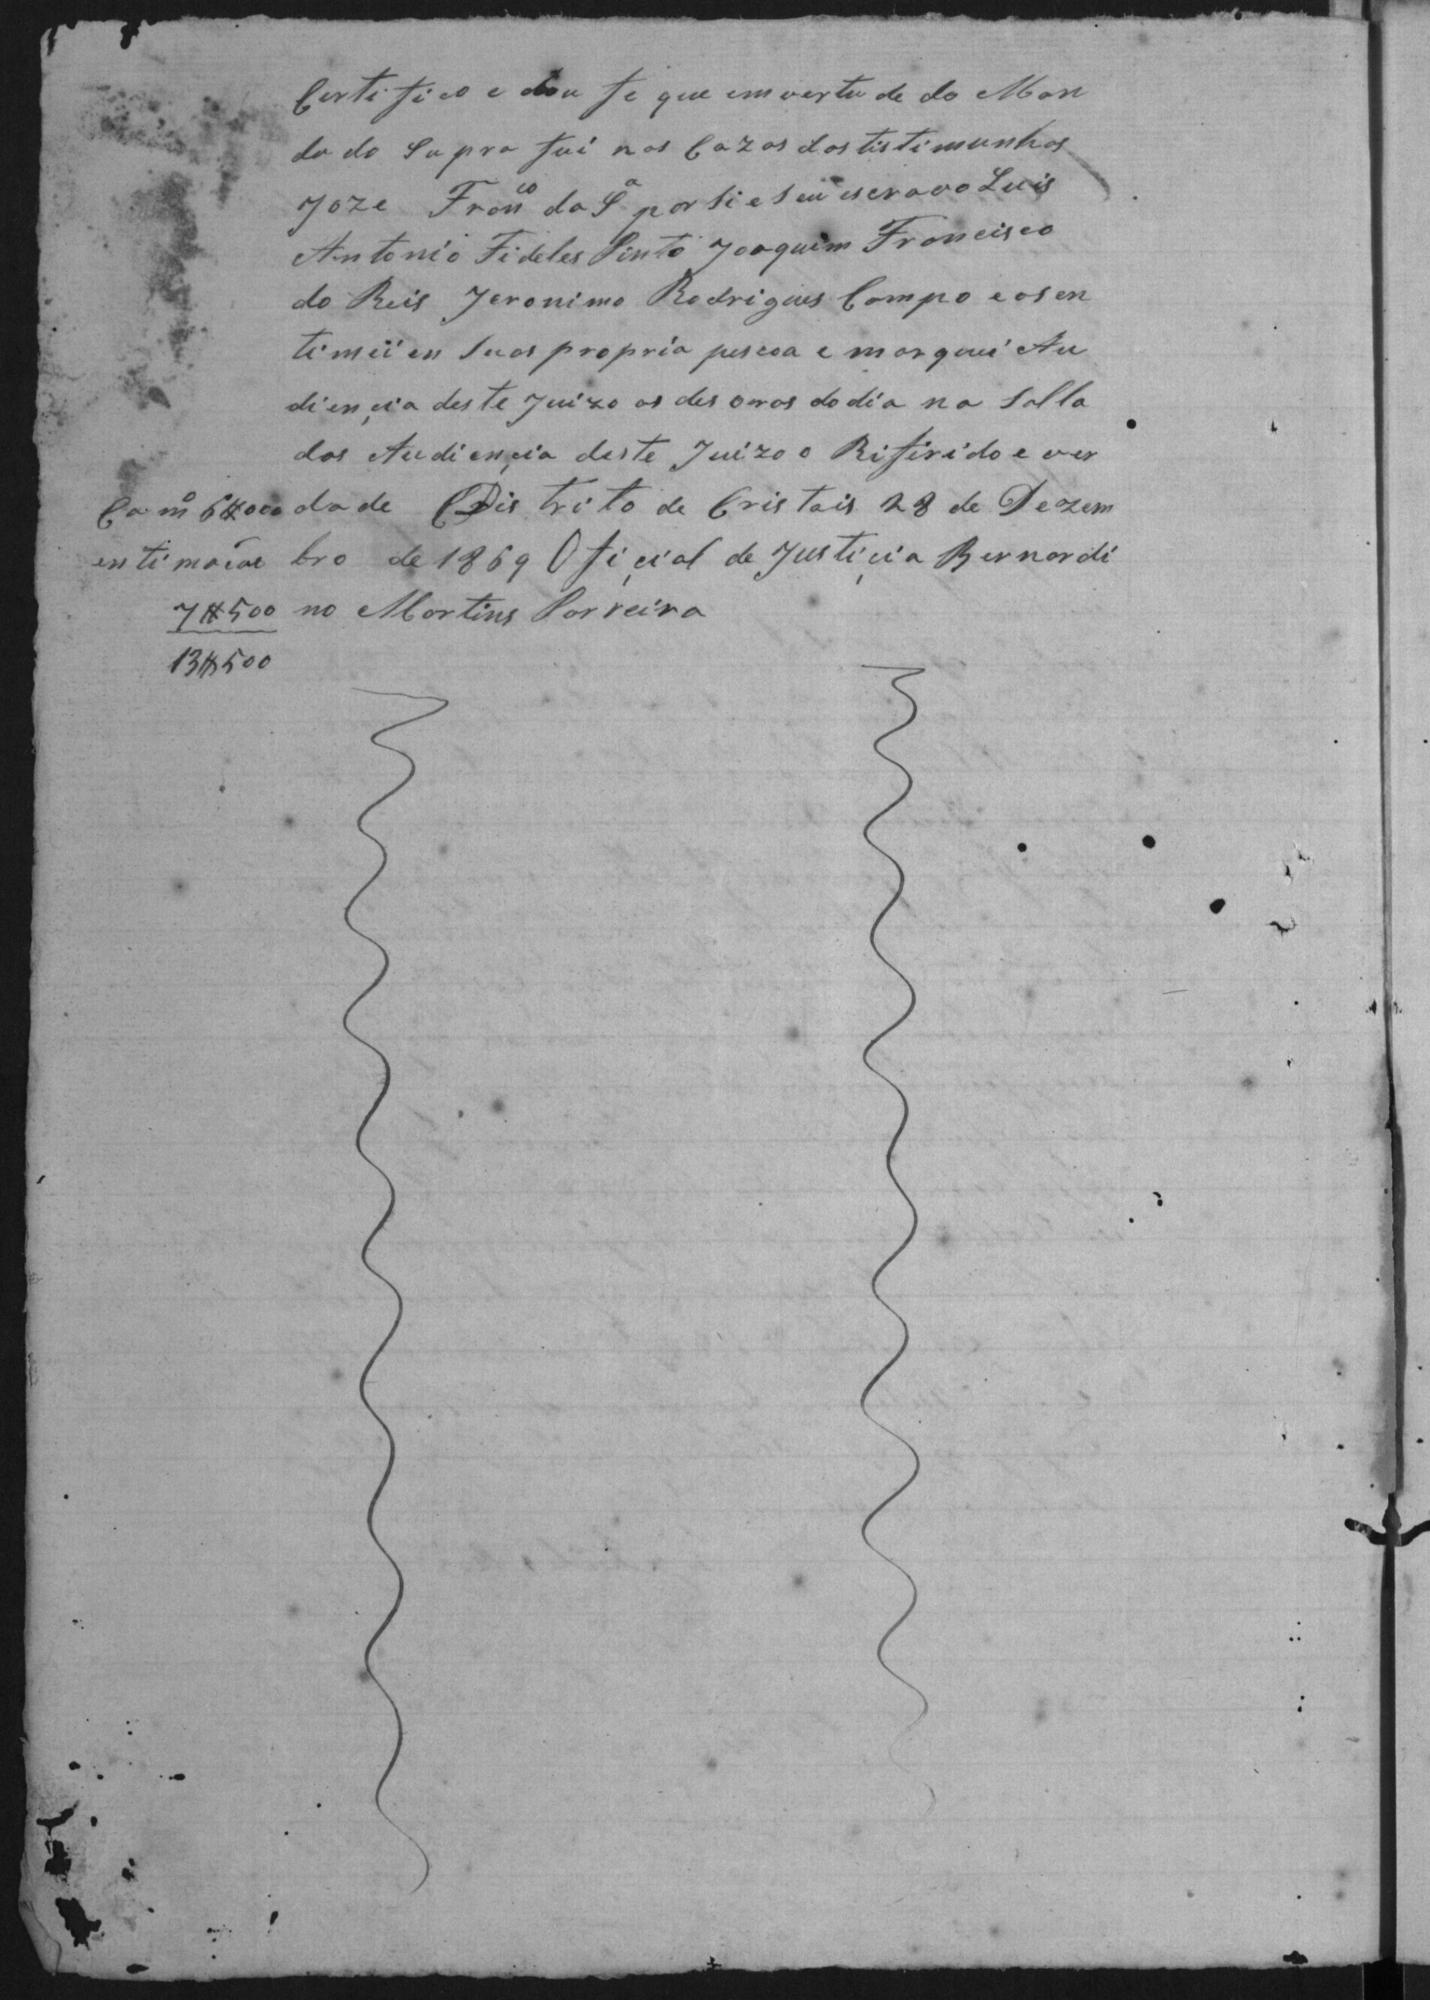 Certifico e dou fe que em vertude do Man
dado Supra fui nas Cazas das tistimunhas
Joze Fran.co da S.a por Si e Seu escravo Luis
Antonio Fideles Pinto Joaquim Francisco
do Reis Jeronimo Rodrigues Campo e os en
timei en Suas propria pescoa e marquei Au
diençia deste Juizo as des oras do dia na Salla
das Audiençia deste Juizo o Rifirido e ver
Cam.o 6$000 dade Distrito de Cristais 28 de Dezem
entimacoes bro de 1869 Ofiçial de Justiçia Bernardi
7$500 no Martins Parreira
13$500